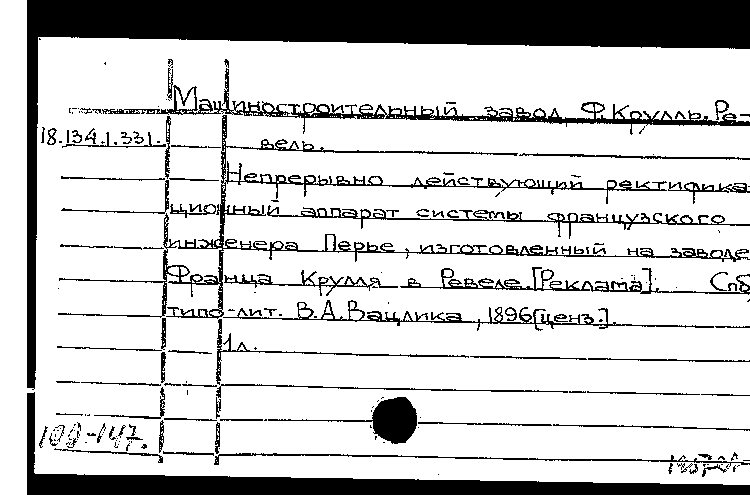 Машиностроительный завод Ф.Крулль. Ре-
18.134.1.331. вель.
Непрерывно действующий ректифика
ционный аппарат системы французского
инженера Перье, изготовленный на заводе
Франца Крулля в Ревеле.[Реклама]. Спб,
типо-лит. В.А.Вацлика, 1896[ценз.].
1л.
100-147.